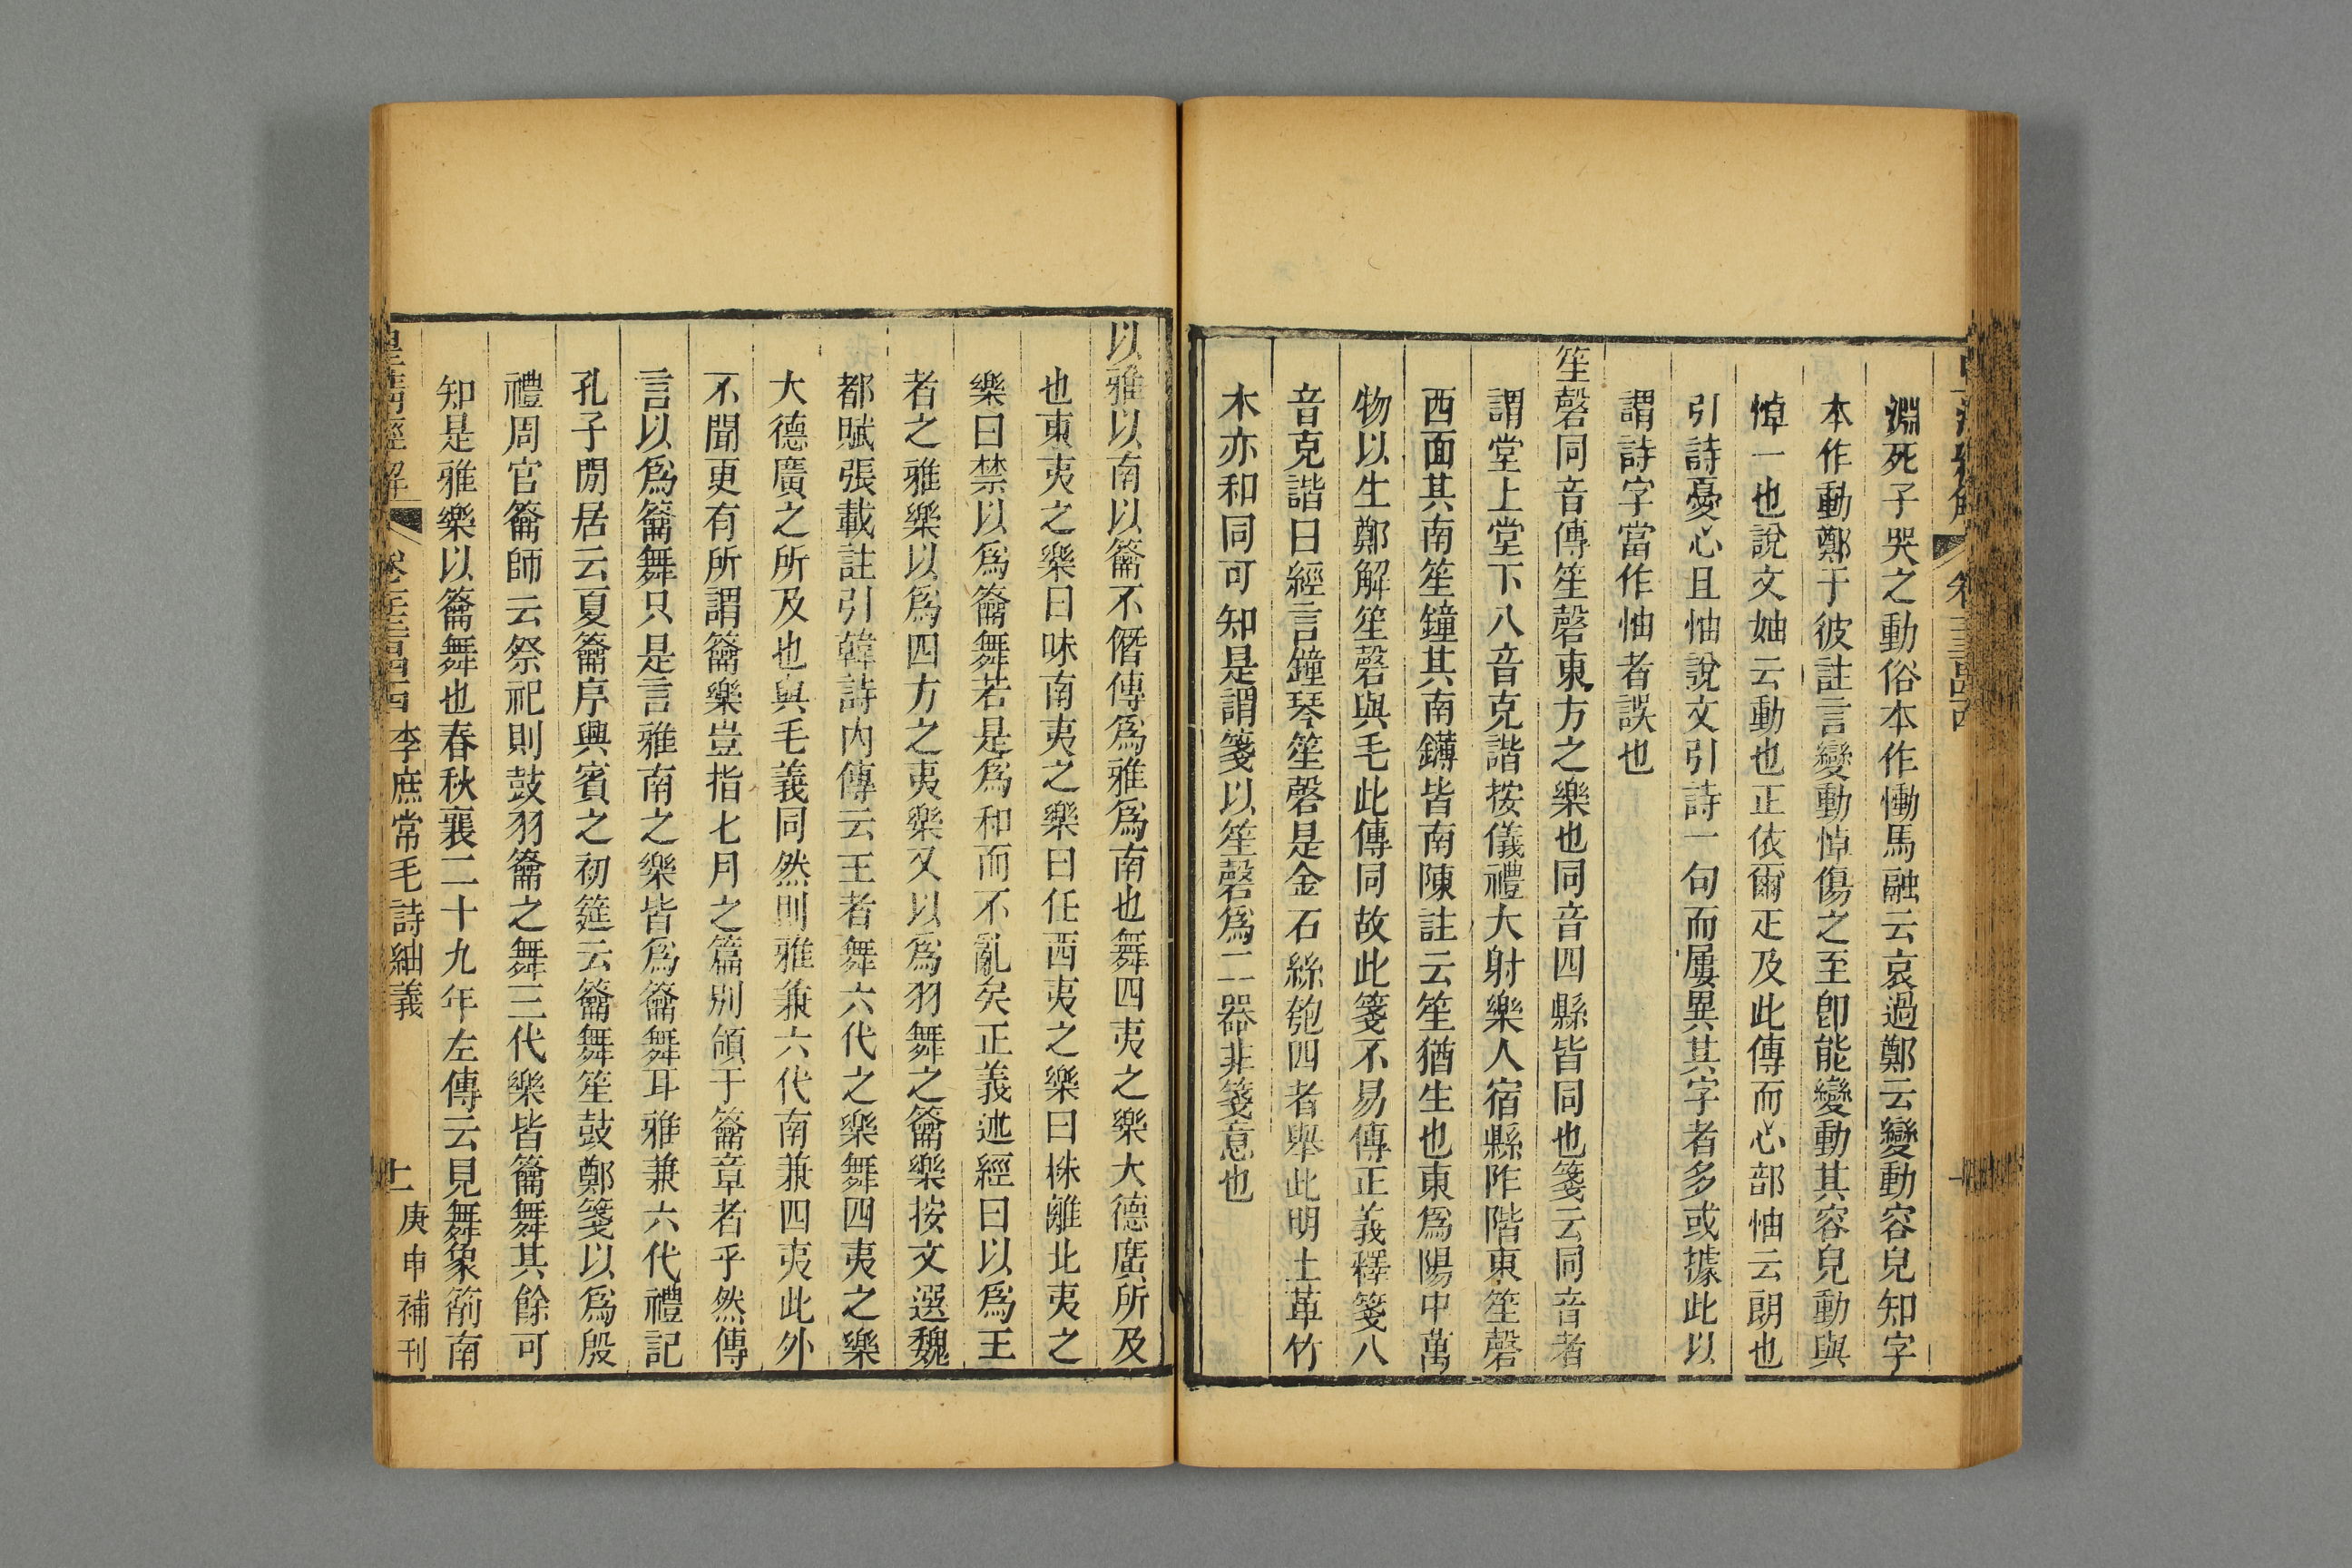 淵死子哭之動俗本作慟馬融云哀過鄭云變動容皃知字
本作動鄭于彼註言變動悼傷之至卽能變動其容皃動與
悼一也說文妯云動也正依爾疋及此傳而心部怞云朗也
引詩憂心且怞說文引詩一句而屢異其字者多或據此以
謂詩字當作怞者誤也
笙磬同音傳笙磬東方之樂也同音四縣皆同也箋云同音者
謂堂上堂下八音克諧按儀禮大射樂人宿縣阼階東笙磬
西面其南笙鐘其南鑮皆南陳註云笙猶生也東爲陽中萬
物以生鄭解笙磬與毛此傳同故此箋不易傳正義釋箋八
音克諧曰經言鐘琴笙磬是金石絲匏四者舉此明土革竹
木亦和同可知是謂箋以笙磬爲二器非箋意也
以雅以南以籥不僭傳爲雅爲南也舞四夷之樂大德廣所及
也東夷之樂曰昧南夷之樂曰任西夷之樂曰株離北夷之
樂曰禁以爲籥舞若是爲和而不亂矣正義述經曰以爲王
者之雅樂以爲四方之夷樂又以爲羽舞之籥樂按文選魏
都賦張載註引韓詩內傳云王者舞六代之樂舞四夷之樂
大德廣之所及也與毛義同然則雅兼六代南兼四夷此外
不聞更有所謂籥樂豈指七月之篇別頒于籥章者乎然傳
言以爲籥舞只是言雅南之樂皆爲籥舞耳雅兼六代禮記
孔子閒居云夏籥序興賓之初筵云籥舞笙鼓鄭箋以爲殷
禮周官籥師云祭祀則鼓羽籥之舞三代樂皆籥舞其餘可
知是雅樂以籥舞也春秋襄二十九年左傳云見舞象箾南
皇淸經解 李庶常毛詩紬義 庚申補刊